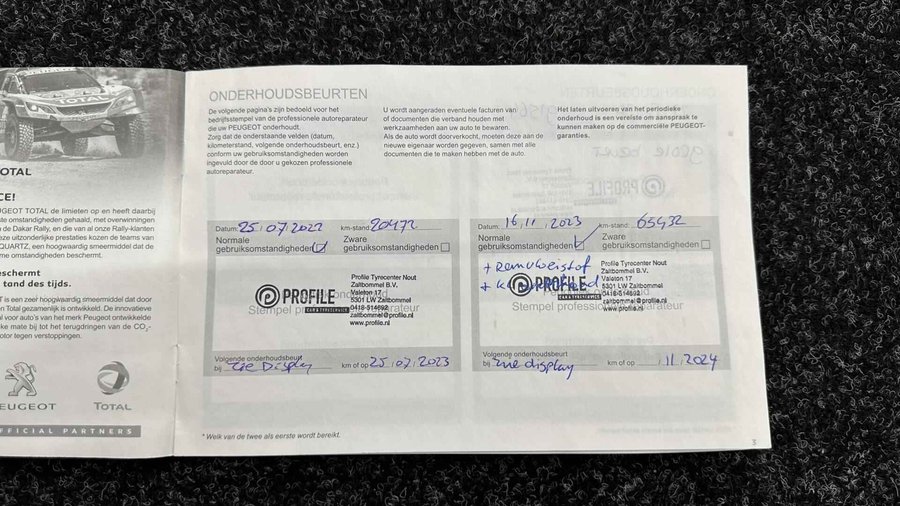 TOTAL
OTAL
CE!
UGEOT TOTAL de limieten op en heeft daarbij
ste omstandigheden gehaald, met overwinningen
n de Dakar Rally, en die van al onze Rally-klanten
eze uitzonderlijke prestaties kozen de teams van
QUARTZ, een hoogwaardig smeermiddel dat de
me omstandigheden beschermt.
eschermt
tand des tijds.
T is een zeer hoogwaardig smeermiddel dat door
en Total gezamenlijk is ontwikkeld. De innovatieve
ol voor auto's van het merk Peugeot ontwikkelde
ke mate bij tot het terugdringen van de CO₂-
otor tegen verstoppingen.
EUGEOT
TOTAL
FFICIAL PARTNERS
ONDERHOUDSBEURTEN
De volgende pagina's zijn bedoeld voor het
bedrijfsstempel van de professionele autoreparateur
die uw PEUGEOT onderhoudt.
Zorg dat de onderstaande velden (datum,
kilometerstand, volgende onderhoudsbeurt, enz.)
conform uw gebruiksomstandigheden worden
ingevuld door de door u gekozen professionele
autoreparateur.
U wordt aangeraden eventuele facturen van
of documenten die verband houden met
werkzaamheden aan uw auto te bewaren.
Als de auto wordt doorverkocht, moeten deze aan de
nieuwe eigenaar worden gegeven, samen met alle
documenten die te maken hebben met de auto.
Het laten uitvoeren van het periodieke
onderhoud is een vereiste om aanspraak te
kunnen maken op de commerciële PEUGEOT-
garanties.
Datum: 25.07.2022 km-stand: 20472
Normale
gebruiksomstandigheden
Zware
gebruiksomstandigheden
PROFILE
CAR & TYRESERVICE
Profile Tyrecenter Nout
Zaltbommel B.V.
Valeton 17
5301 LW Zaltbommel
0418-514692
zaltbommel@profile.nl
www.profile.nl
Stempel professionele reparateur
Volgende onderhoudsbeurt
bij zie Display km of op 25/07/2023
Datum: 16.11.2023 km-stand: 65432
Normale
gebruiksomstandigheden
Zware
gebruiksomstandigheden
+ Remvloeistof
+
PROFILE
CAR & TYRESERVICE
Profile Tyrecenter Nout
Zaltbommel B.V.
Valeton 17
5301 LW Zaltbommel
0418-514692
zaltbommel@profile.nl
www.profile.nl
Stempel professionele reparateur
Volgende onderhoudsbeurt
bij zie display km of op / 11 / 2024
* Welk van de twee als eerste wordt bereikt.
3